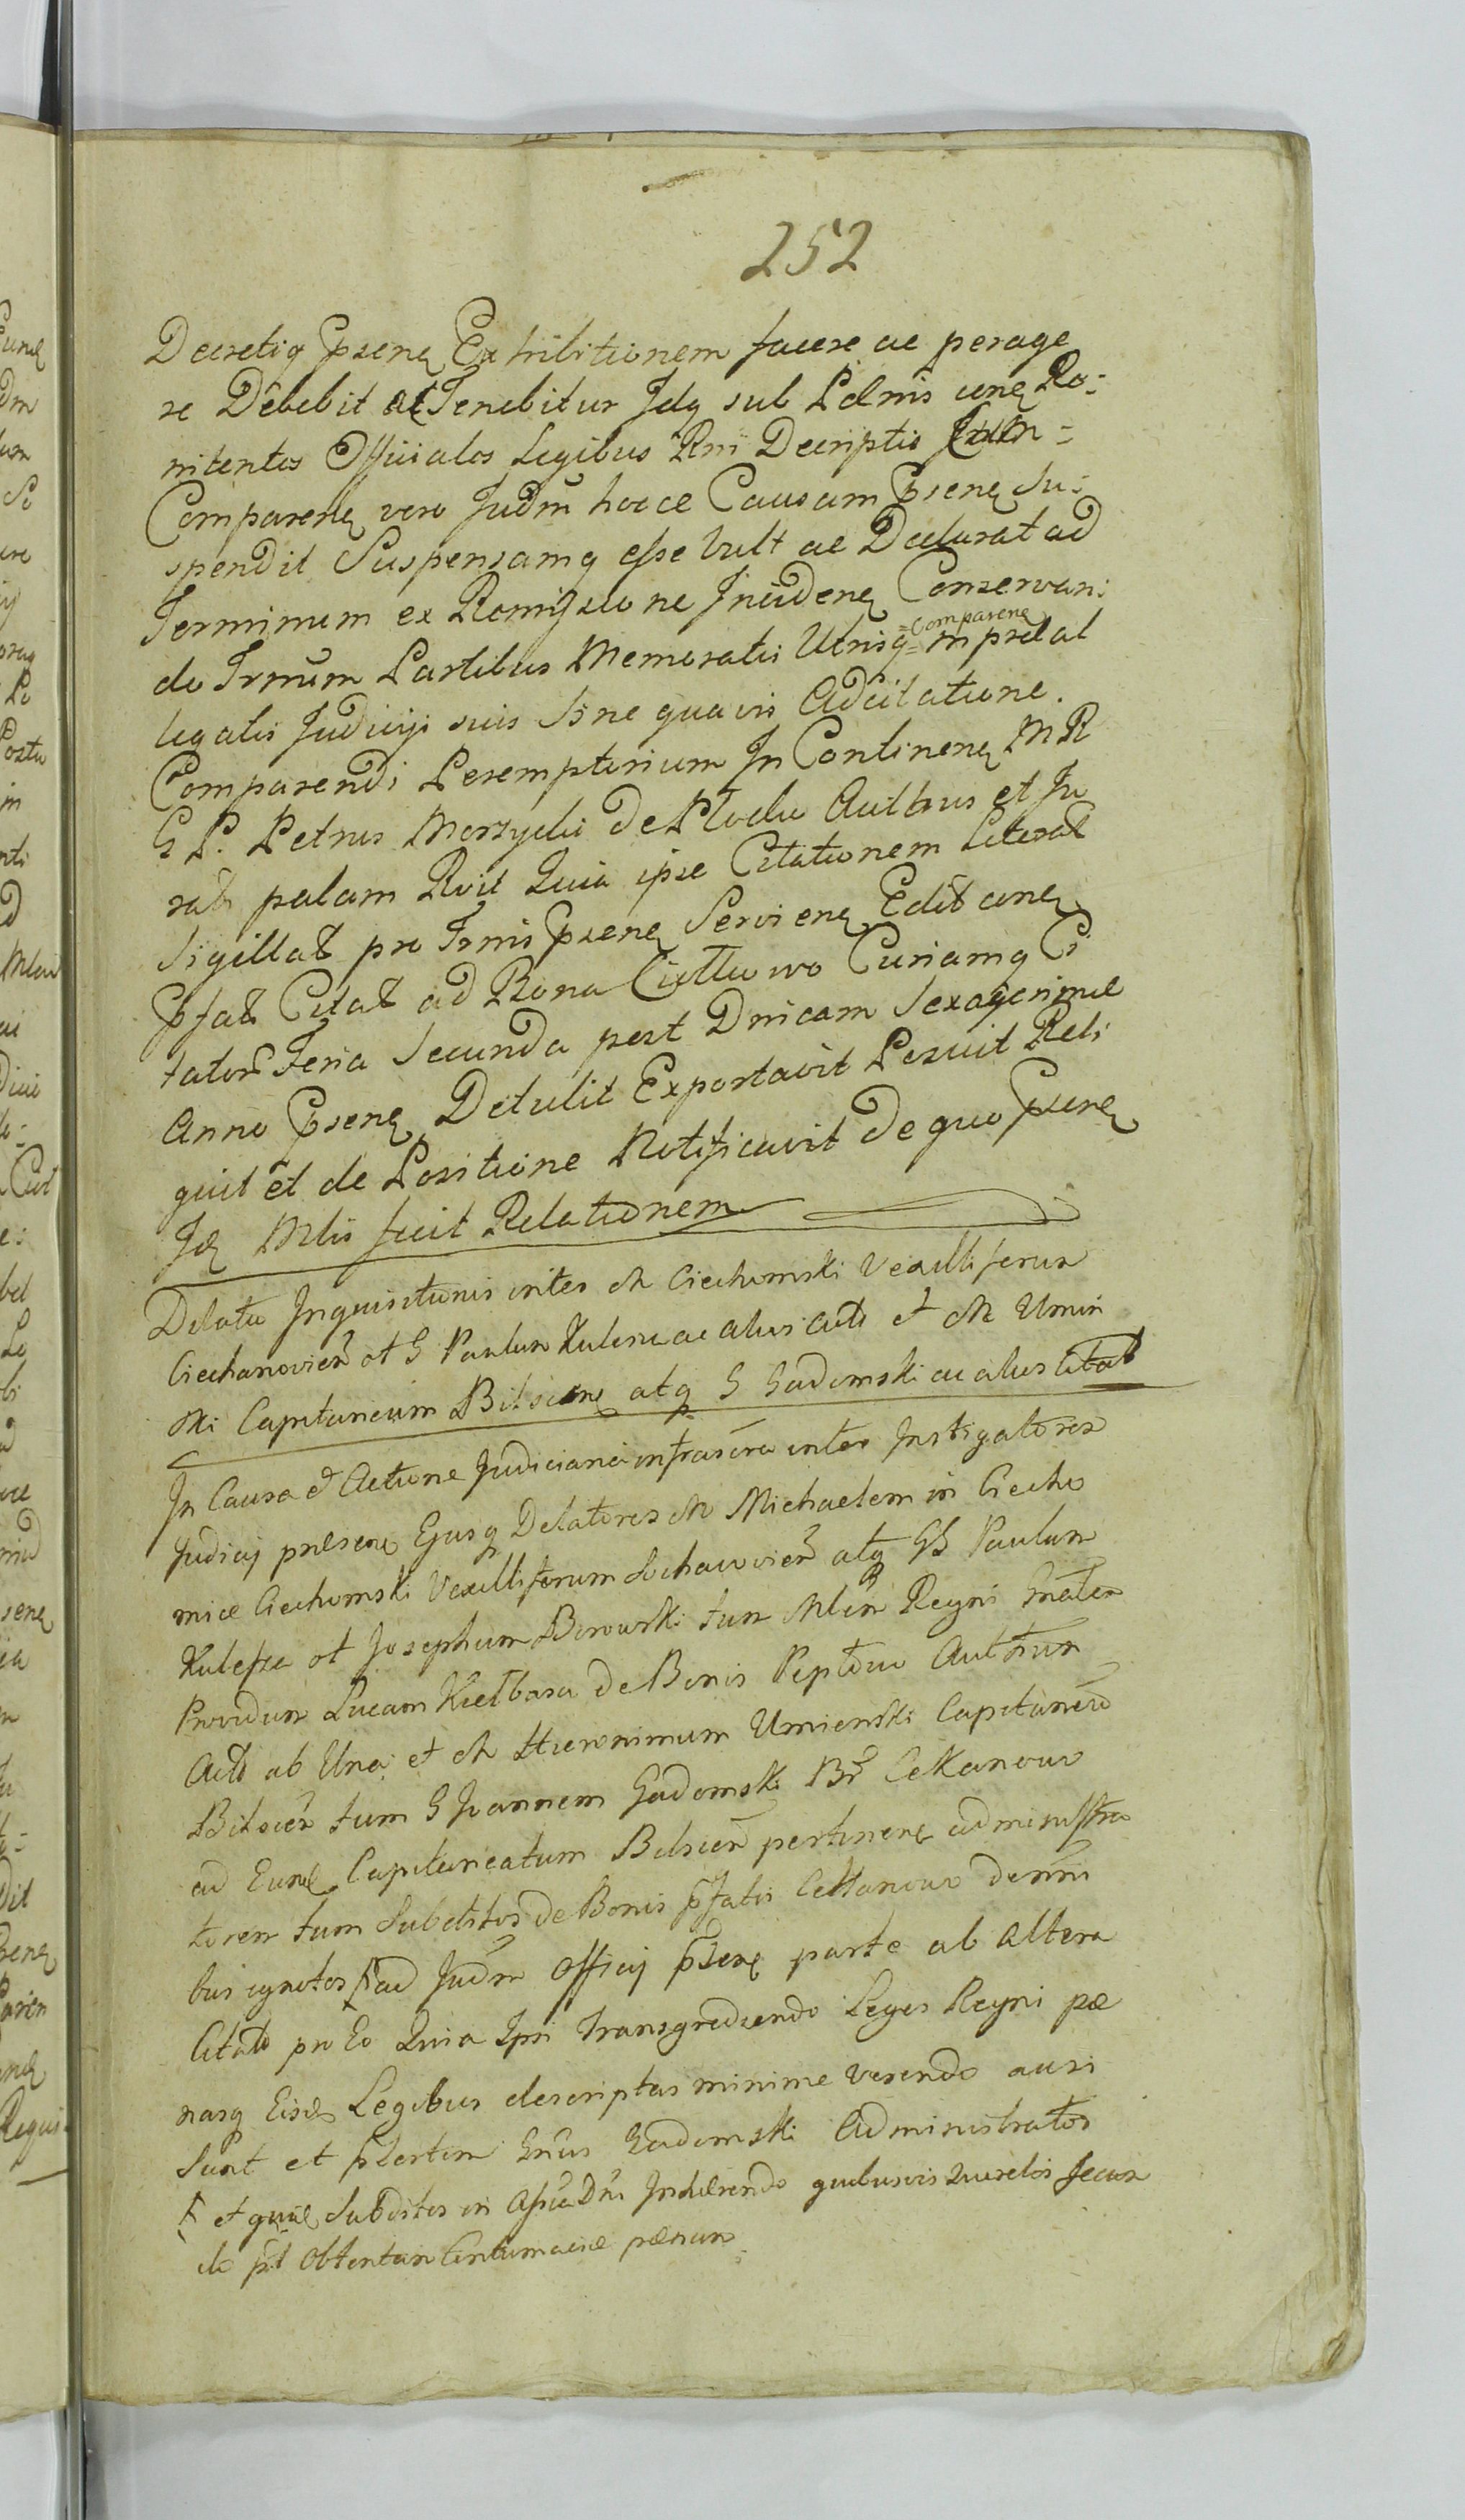 252
Decretiq Psenq Exhibitionem facere ac perage
re Debebit at Tenebitur Idq sub Pænis conq Re=
nitentes Officiales Legibus Rni Descriptis
Comparenq vero Judm hocce Causam Psenq Su=
spendit Suspensamq esse Vult ac Declarat ad
Terminum ex Remissione Incidenq Conservan=
do Trmum Partibus Memoratis Utrisq =Comparenq= in præal
legatis Judicijs suis Sine quavis Adcitatione.
Comparendi Peremptorium In Continenq MR
G P. Petrus Morzycki de Plocku Authus et Ju
rats palam Rvit Quia ipse Citationem Literat
Sigillat pro Trmis Psenq Servienq Edit conq
Pfat Citat ad Bona Curiamq Ci
tator Feria Secunda post Dnicam Sexagesimæ
Anno Psenq Detulit Exportavit Posuit Reli
quit et de Positione Notificavit de quo Psenq
Idq Mlis fecit Relationem
Delata Inquisitionis inter M Ciechomski Vexilliferum
Ciechanovien et G Paulum Kulesza ac alios Acts et M Umin
ski Capitaneum Bilscenq atq G Gadomski ac alios Citat
In Causa et Actione Judiciaria infrascra inter Instigatores
Judicij præsenq Ejusq Delatores M Michaelem in Ciecho
mice Ciechomski Vexilliferum Sochacovien atq GG Paulum
Kulesza et Josephum Borowski tum Mlem Regni Gnalem
Providum Lucam Kiełbasa de Bonis Authum
Acts ab Una et M Hieronimum Umienski Capitaneum
Bilscien tum G Joannem Gadomski Br Cekanowo
ad Eund Capitaneatum Bilscien pertinenq administra
torem tum Subditos de Bonis pfatis Cekanowo de nni
bus ignotos ꟻ ad Judm Officij psenq parte ab Altera
Citats pro Eo Quia Ipsi Transgrediendo Leges Regni pæ
nasq Eisd Legibus descriptas minime verendo ausi
Sunt et psertim Gnus Gadomski Administrator
ꟻ et Subditos in Assia Dni Inhærendo quibusvis Querelis
de pt Obtentam Contumaciæ pænam